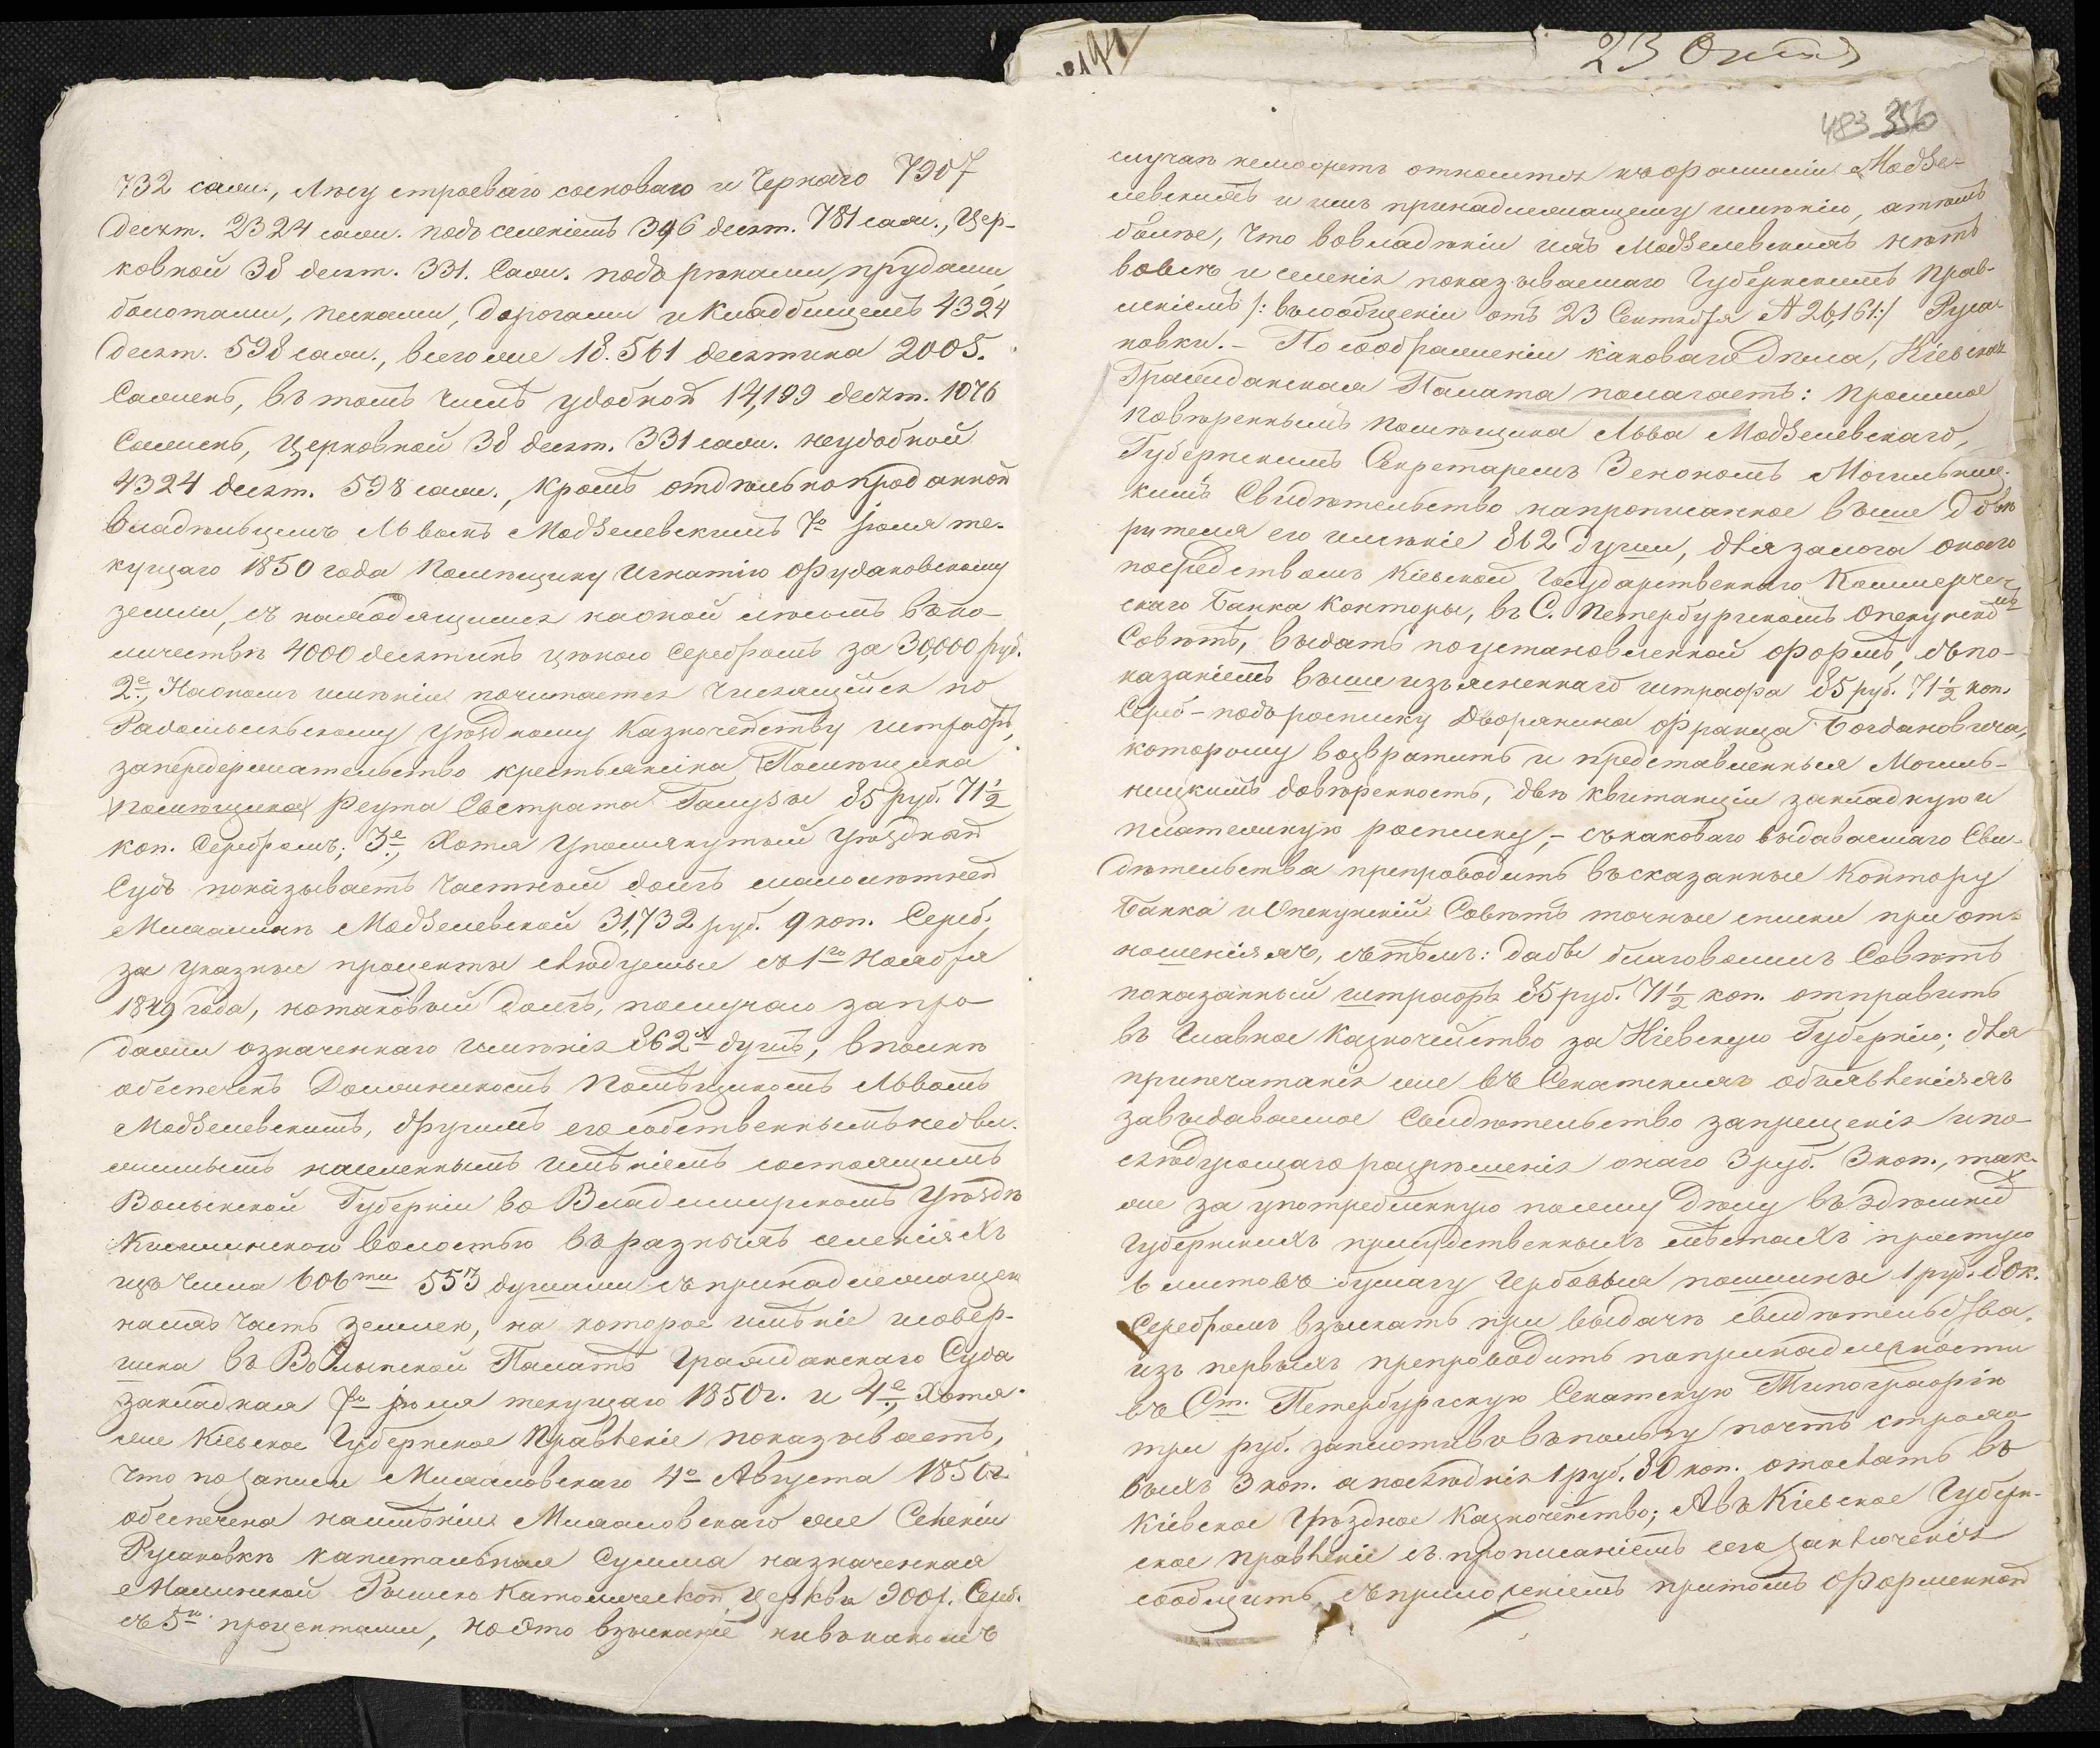 732 саж., лѣсу строеваго сосноваго и чернаго 7907
десят. 2324 саж. подъ селеніемъ 396 десят. 781 саж., Цер-
ковной 38 десят. 331. саж. подъ рѣками, прудами,
болотами, песками, дорогами и кладбищемъ 4324
десят. 598 саж., всего же 18.561 десятина 2005.
Саженъ, въ томъ числѣ удобной 14,199 десят. 1076
Саженъ, Церковной 38 десят. 331 саж. неудобной
4324 десят. 598 саж., кромѣ отдѣльно проданной
владѣльцемъ Львомъ Модзелевскимъ 7го Іюля те-
кущаго 1850 года Помѣщику Игнатію Фудаковскому
земли, съ находящимся на оной лѣсомъ въ ко-
личествѣ 4000 десятинъ цѣною серебромъ за 30,000 руб.
2е., На оном имѣніи почитается числящійся по
Радомысльскому Уѣздному Казначейству штрафъ,
за передержательство крестьянина Помѣщика
помѣщика Реута Евстрата Галузы 85 руб. 71½
коп. Серебромъ; 3е., Хотя упомянутый Уѣздный
Судъ показываетъ частный долгъ малолѣтней
Модзелевской 31,732 руб. 9 коп. Сереб.
за указные проценты слѣдуемые съ 1го Ноября
1849 года, но таковый долгъ, по случаю запро
дажи означеннаго имѣнія 862х душъ, вполнѣ
обезпеченъ Должникомъ Помѣщикомъ Львомъ
Модзелевскимъ, другимъ его собственнымъ недви-
жимымъ населеннымъ имѣніемъ состоящимъ
Волынской Губерніи во Владимирскомъ Уѣздѣ
Киселинской волостью въ разныхъ селеніяхъ
изъ числа 606ти 553 душами съ принадлежащею
на нихъ часть землею, на которое имѣніе и совер-
шена въ Волынской Палатѣ Гражданскаго Суда
закладная 7го Іюля текущаго 1850г. и 4е., Хотя
же Кіевское Губернское Правленіе показываетъ,
что по записи Михаловскаго 4го Августа 1850г.
обезпечена на имѣніи Михаловскаго же Селеніи
Русановкѣ капитальная сумма назначенная
Малинской Римско Католической церкви 900 р. Сереб.
съ 5ю процентами, но это взысканіе ни въ какомъ
23 Октяб
483 356
случаѣ не можетъ относится къ Модзе-
левскихъ и имъ принадлежащему имѣнію, а тѣмъ
болѣе, что во владѣніи ихъ Модзелевскихъ нѣтъ
вовсе и селенія показываемаго Губернскимъ Прав-
леніемъ /: въ сообщеніи отъ 23 Сентября № 26,161:/ Руса-
новки. - По соображеніи каковаго дѣла, Кіевская
Гражданская Палата полагаетъ: просимое
повѣреннымъ помѣщика Льва Модзелевскаго,
Губернскимъ Секретаремъ Зенономъ Могильниц-
кимъ Свидѣтельство на прописанное выше довѣ
рителя его имѣніе 862 души, для залога онаго
посредствомъ Кіевской Государственнаго Коммерчес
скаго Банка Конторы, въ С. Петербургскомъ Опекунскомъ
Совѣтѣ, выдать по установленной формѣ, съ по-
казаніемъ выше изъясненнаго штрафа 85 руб. 71½ коп.
Сереб - подъ росписку Дворянина Франца Богдановича,
которому возвратить и представленныя Могиль-
ницкимъ довѣренность, двѣ квитанціи закладную и
платежную росписку, - съ каковаго выдаваемаго Сви-
дѣтельства препроводить въ сказанные Контору
Банка и Опекунскій Совѣтъ точные списки при от-
ношеніяхъ, съ тѣмъ: дабы благоволилъ Совѣтъ
показанный штрафъ 85 руб. 71½ коп. отправить
въ Главное Казначейство за Кіевскую Губернію; для
припечатанія же въ Сенатскихъ объявленіяхъ
за выдаваемое Свидѣтельство запрещенія и по-
слѣдующаго разрѣшенія онаго 3 руб. 3 коп., так-
же за употребленную по сему дѣлу въ здѣшних
Губернскихъ присудственныхъ мѣстахъ простую
6 листовъ бумагу гербовыя пошлины 1 руб. 80 к.
Серебромъ взыскать при выдачѣ свидѣтельства,
изъ первыхъ препроводить по принадлежности
въ Ст. Петербургскую Сенатскую Типографію
три руб. заплотивъ въ пользу почтъ страхо
выхъ 3 коп. а послѣднія 1 руб. 80 коп. отослать въ
Кіевское Уѣздное Казначейство; А въ Кіевское Губерн-
ское правленіе съ прописаніемъ сего заключенія
сообщить, съ приложеніемъ притомъ форменной